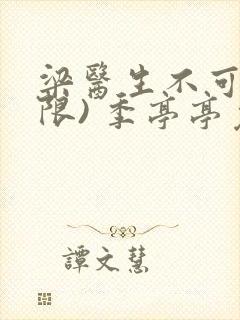 梁醫生不可
限)季亭亭
譚文慧